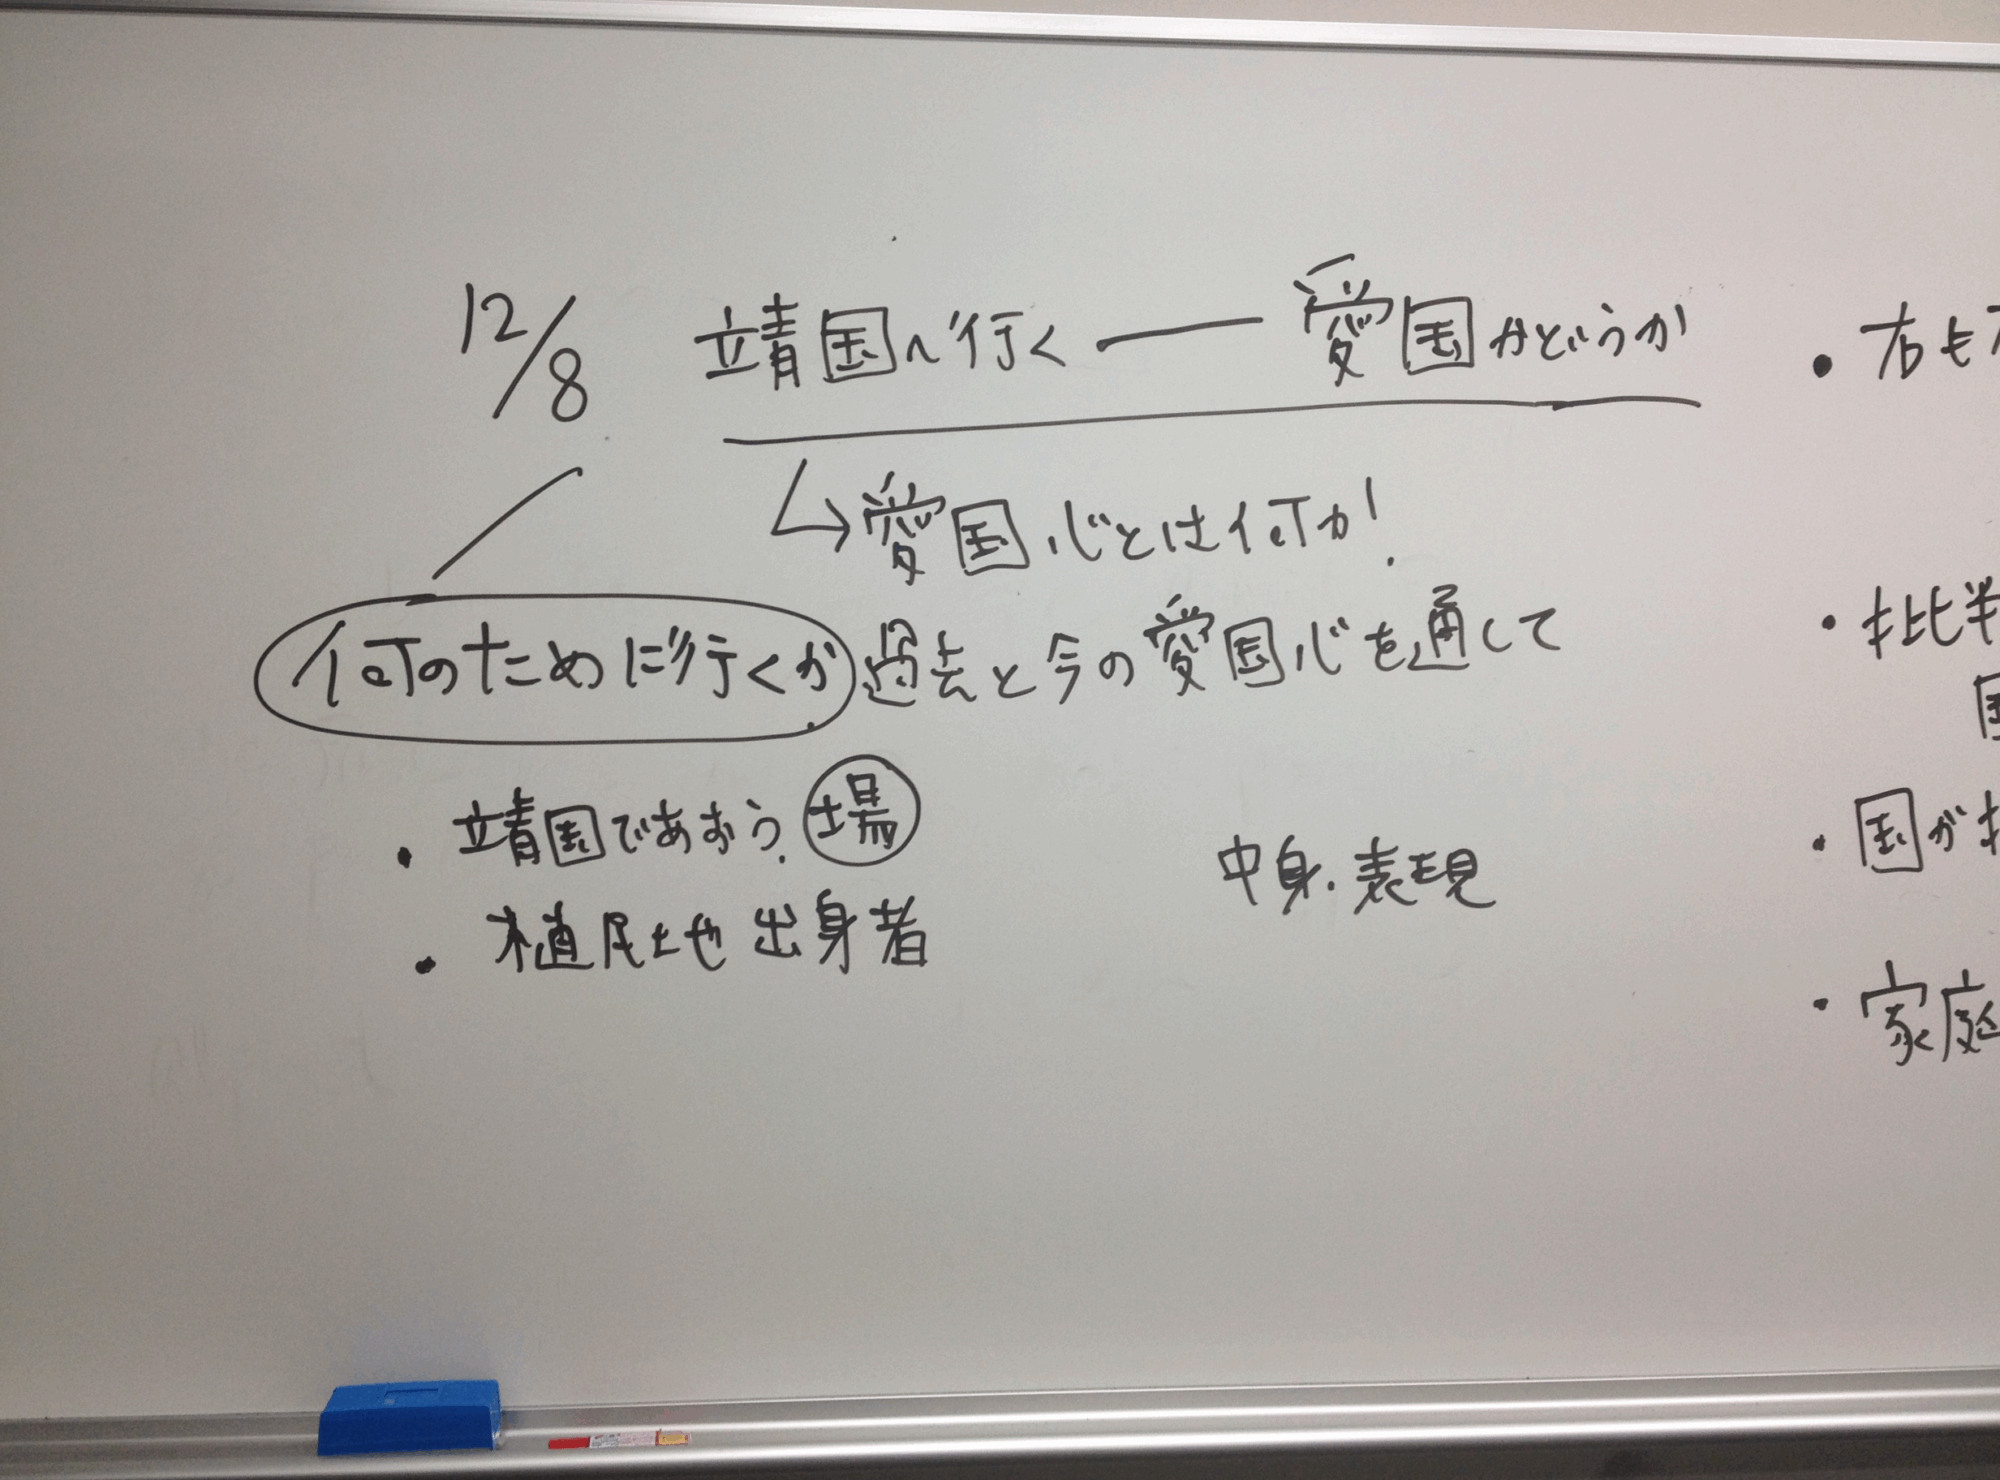 12/8
靖国へ行く ― 愛国かどうか
↳ 愛国心とは何か!
何のために行くか
過去と今の愛国心を通して
・靖国であおう。場
・植民地出身者
中身・表現
・右も
・批判
国
・国が
・家庭